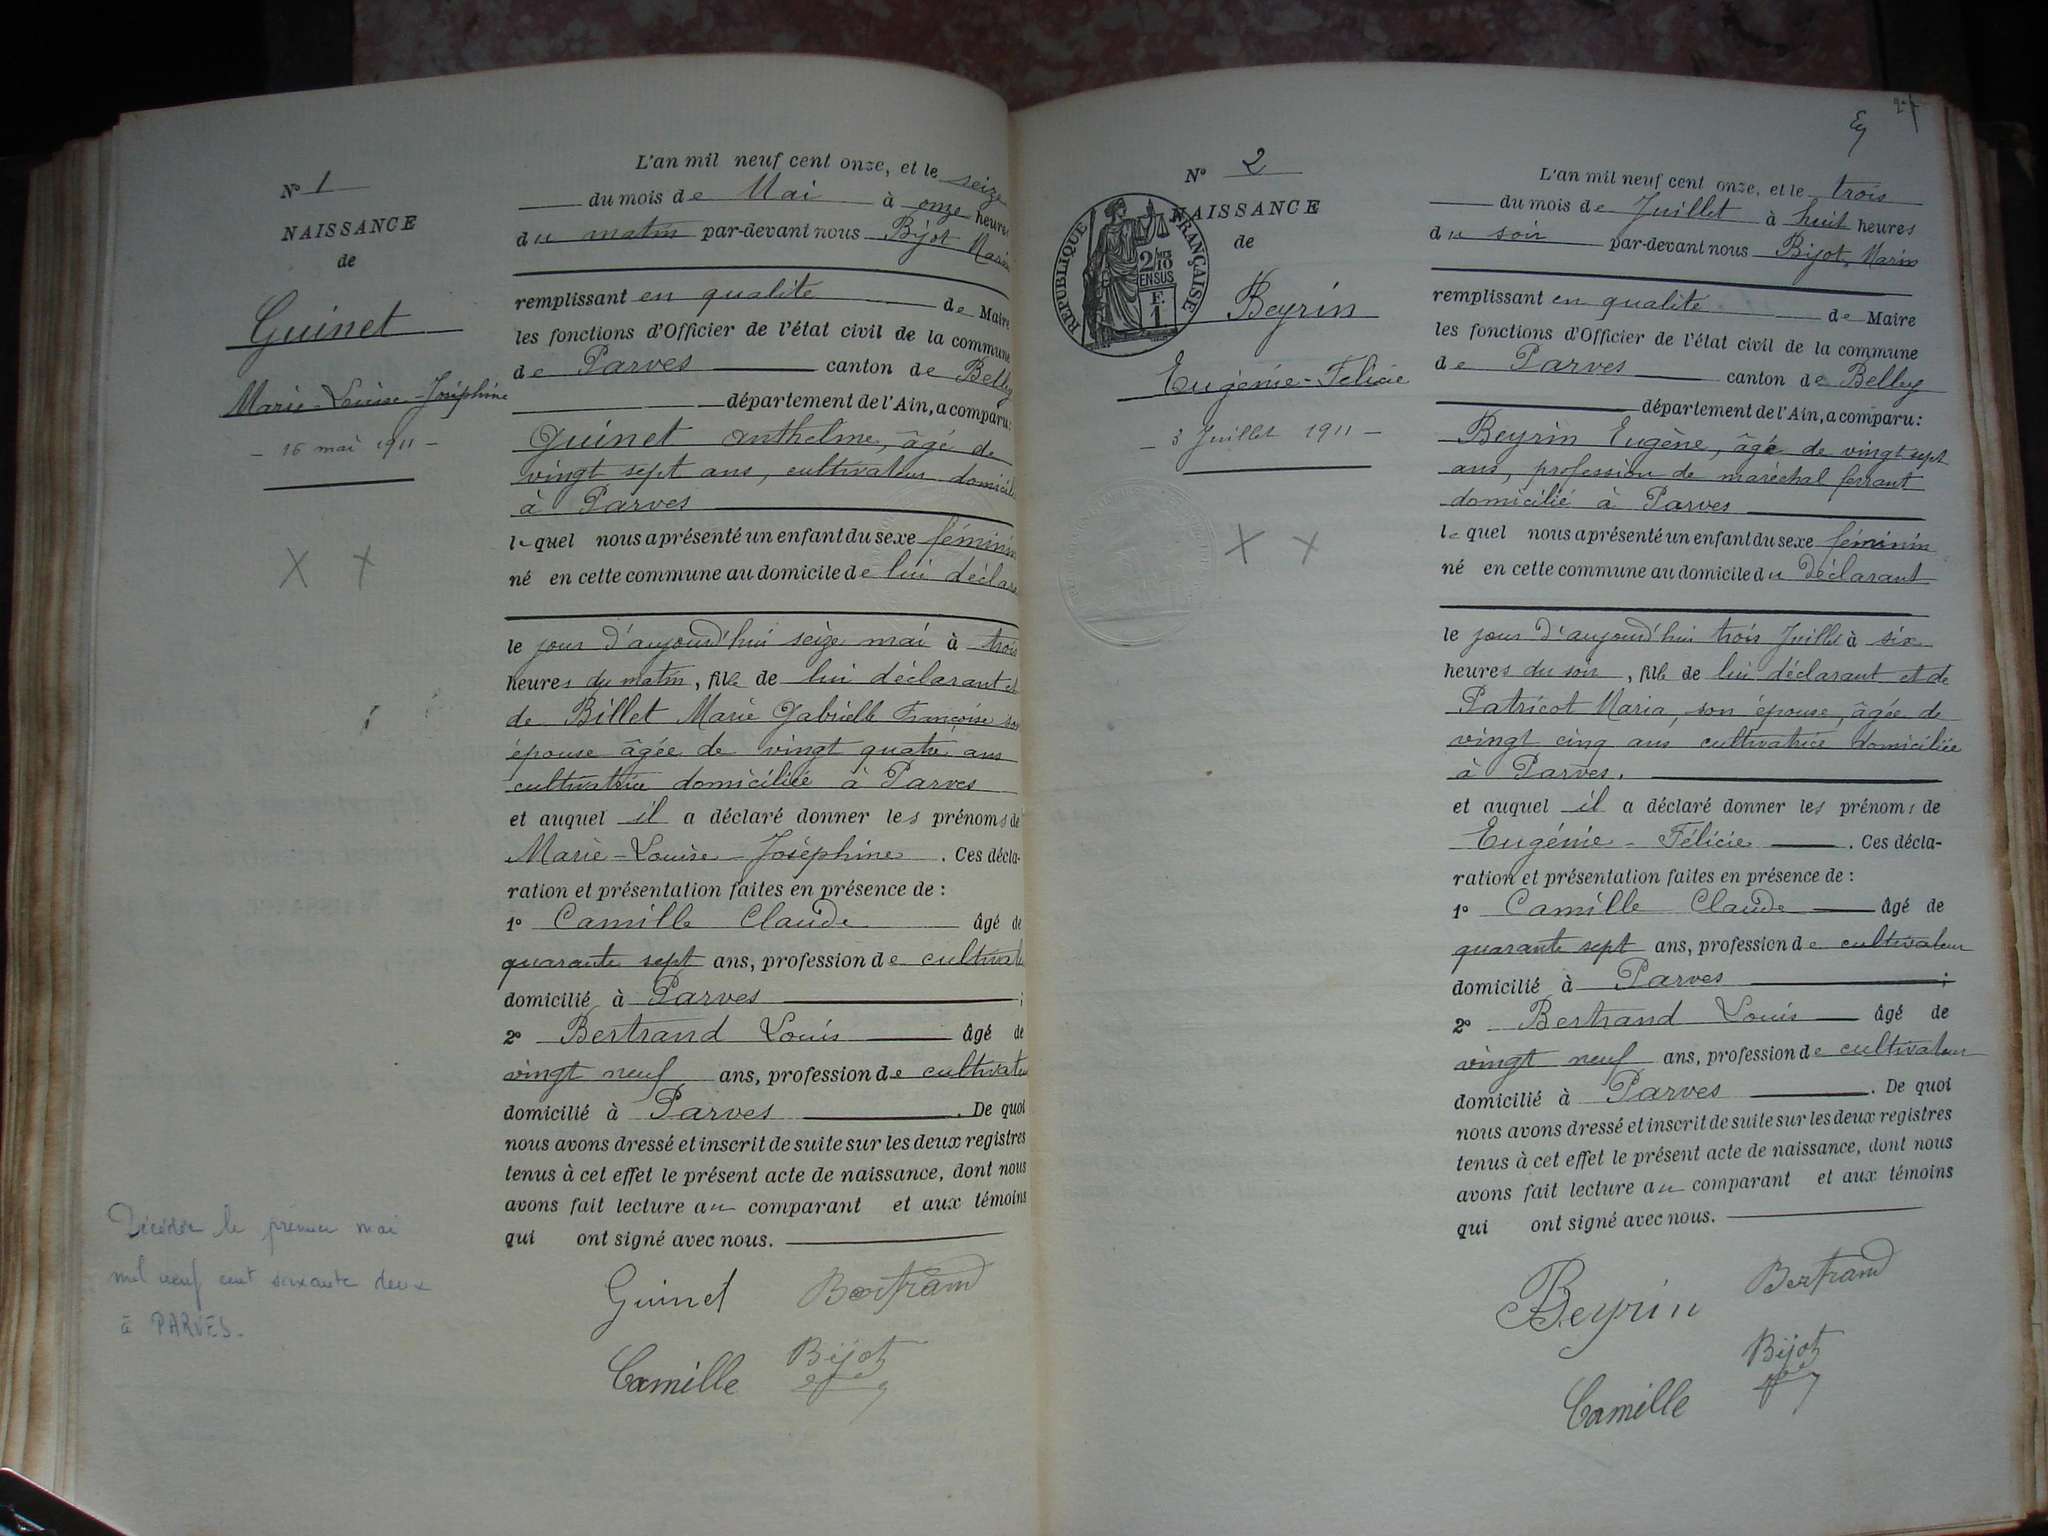 N° 1
NAISSANCE
de
Guinet
Marie-Louise-Joséphine
- 16 mai 1911 -
X X
Décédée le premier mai
mil neuf cent soixante deux
à PARVES.
L'an mil neuf cent onze, et le seize
du mois de Mai à onze heures
du matin par-devant nous Bijot Marin
remplissant en qualité de Maire
les fonctions d'Officier de l'état civil de la commune
de Parves canton de Belley
département de l'Ain, a comparu:
Guinet Anthelme, âgé de
vingt sept ans, cultivateur domicilié
à Parves
lequel nous a présenté un enfant du sexe féminin
né en cette commune au domicile de lui déclarant
le jour d'aujourd'hui seize mai à trois
heures du matin, fille de lui déclarant et
de Billet Marie Gabrielle Françoise son
épouse âgée de vingt quatre ans
cultivatrice domiciliée à Parves
et auquel il a déclaré donner les prénoms de
Marie-Louise-Joséphine. Ces décla-
ration et présentation faites en présence de :
1° Camille Claude âgé de
quarante sept ans, profession de cultivateur
domicilié à Parves ;
2° Bertrand Louis âgé de
vingt neuf ans, profession de cultivateur
domicilié à Parves. De quoi
nous avons dressé et inscrit de suite sur les deux registres
tenus à cet effet le présent acte de naissance, dont nous
avons fait lecture au comparant et aux témoins
qui ont signé avec nous.
Guinet Bertrand
Camille Bijot
N° 2
NAISSANCE
de
RÉPUBLIQUE FRANÇAISE
2/10 EN SUS
F. 1
Beyrin
Eugénie-Félicie
- 3 Juillet 1911 -
X X
27
L'an mil neuf cent onze, et le trois
du mois de Juillet à huit heures
du soir par-devant nous Bijot, Marin
remplissant en qualité de Maire
les fonctions d'Officier de l'état civil de la commune
de Parves canton de Belley
département de l'Ain, a comparu:
Beyrin Eugène, âgé de vingt sept
ans, profession de maréchal ferrant
domicilié à Parves
lequel nous a présenté un enfant du sexe féminin
né en cette commune au domicile du déclarant
le jour d'aujourd'hui trois Juillet à six
heures du soir, fille de lui déclarant et de
Patricot Maria, son épouse, âgée de
vingt cinq ans cultivatrice domiciliée
à Parves.
et auquel il a déclaré donner les prénoms de
Eugénie-Félicie. Ces décla-
ration et présentation faites en présence de :
1° Camille Claude âgé de
quarante sept ans, profession de cultivateur
domicilié à Parves ;
2° Bertrand Louis âgé de
vingt neuf ans, profession de cultivateur
domicilié à Parves. De quoi
nous avons dressé et inscrit de suite sur les deux registres
tenus à cet effet le présent acte de naissance, dont nous
avons fait lecture au comparant et aux témoins
qui ont signé avec nous.
Beyrin Bertrand
Camille Bijot